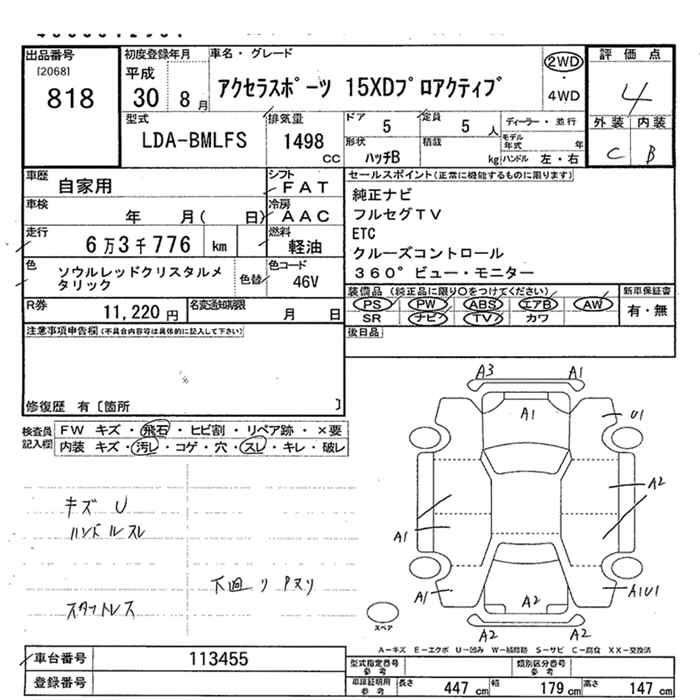 出品番号
[2068]
818
初度登録年月
平成
30 8月
車名・グレード
アクセラスポーツ 15XDプロアクティブ
2WD
・
4WD
評価点
4
型式
LDA-BMLFS
排気量
1498
CC
ドア
5
定員
5 人
形状
ハッチB
積載
kg
ディーラー・並行
モデル年式 年
ハンドル 左・右
外装 内装
C B
車歴
自家用
シフト
FAT
車検
年 月( 日)
冷房
AAC
走行
6万3千776 km
燃料
軽油
色
ソウルレッドクリスタルメ
タリック
色替
色コード
46V
R券
11,220円
名変通知期限
月 日
セールスポイント(正常に機能するものに限ります)
純正ナビ
フルセグTV
ETC
クルーズコントロール
360°ビュー・モニター
装備品 (純正品に限り○をつけてください)
PS PW ABS エアB AW
SR ナビ TV カワ
新車保証書
有・無
後日品
注意事項申告欄(不具合内容等は具体的に記入して下さい)
修復歴 有〔箇所 〕
検査員
記入欄
FW キズ・飛石・ヒビ割・リペア跡・×要
内装 キズ・汚レ・コゲ・穴・スレ・キレ・破レ
キズ U
ハンドルスレ
下廻り Pヌリ
スタットレス
A3 A1
A1
U1
A2
A1
A1
A1U1
A2
A2 A2
スペア
A－キズ E－エクボ U－凹み W－補修跡 S－サビ C－腐食 XX－交換済
車台番号
113455
登録番号
型式指定番号
参考
類別区分番号
参考
車庫証明用
参考
長さ
447 cm
幅
179 cm
高さ
147 cm